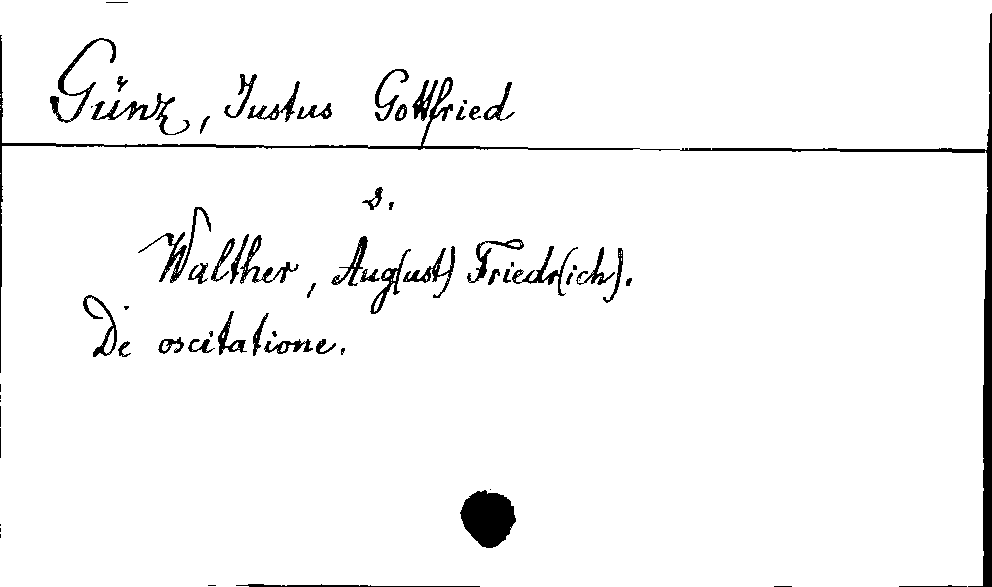 Günz, Iustus Gottfried
s.
Walther, Aug(ust) Friedr(ich).
De oscitatione.